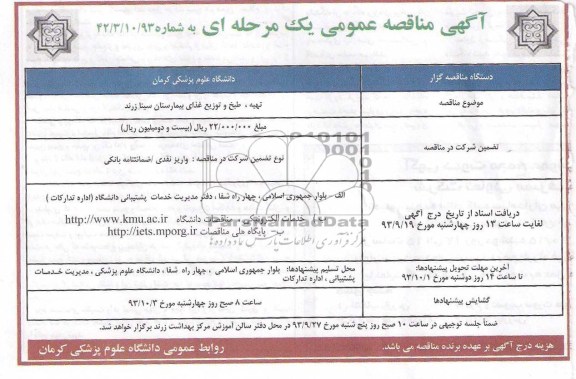 آگهی مناقصه عمومی یک مرحله ای به شماره ۴۲/۳/۱۰/۹۳
دستگاه مناقصه گزار
دانشگاه علوم پزشکی کرمان
موضوع مناقصه
تهیه ، طبخ و توزیع غذای بیمارستان سینا زرند
تضمین شرکت در مناقصه
مبلغ ۲۲/۰۰۰/۰۰۰ ریال (بیست و دومیلیون ریال)
نوع تضمین شرکت در مناقصه : واریز نقدی /ضمانتنامه بانکی
دریافت اسناد از تاریخ درج آگهی
لغایت ساعت ۱۳ روز چهارشنبه مورخ ۹۳/۹/۱۹
الف - بلوار جمهوری اسلامی ، چهار راه شفا ، دفتر مدیریت خدمات پشتیبانی دانشگاه (اداره تدارکات )
خدمات الکترونیک - مناقصات دانشگاه http://www.kmu.ac.ir
ب- پایگاه ملی مناقصات http://iets.mporg.ir
پارس نماد داده ها
ParsNamadData
مرکز فرآوری اطلاعات پارس نماد داده‌ها
آخرین مهلت تحویل پیشنهادها:
تا ساعت ۱۴ روز دوشنبه مورخ ۹۳/۱۰/۱
محل تسلیم پیشنهادها: بلوار جمهوری اسلامی ، چهار راه شفا ، دانشگاه علوم پزشکی ، مدیریت خدمات
پشتیبانی ، اداره تدارکات
گشایش پیشنهادها
ساعت ۸ صبح روز چهارشنبه مورخ ۹۳/۱۰/۳
ضمناً جلسه توجیهی در ساعت ۱۰ صبح روز پنج شنبه مورخ ۹۳/۹/۲۷ در محل دفتر سالن آموزش مرکز بهداشت زرند برگزار خواهد شد.
هزینه درج آگهی بر عهده برنده مناقصه می باشد.
روابط عمومی دانشگاه علوم پزشکی کرمان